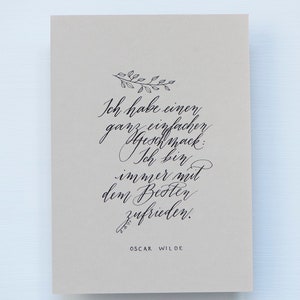 Ich habe einen
ganz einfachen
Geschmack:
Ich bin
immer mit
dem Besten
zufrieden.
OSCAR WILDE